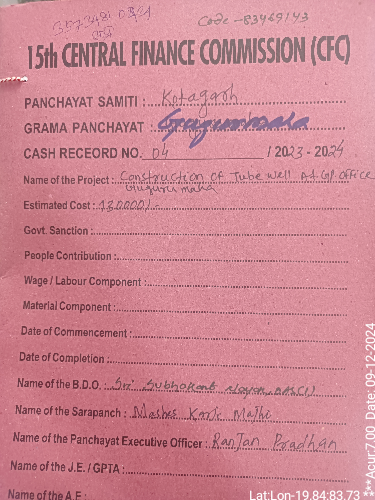 Code -83469143
15th CENTRAL FINANCE COMMISSION (CFC)
PANCHAYAT SAMITI : Kotagarh
GRAMA PANCHAYAT : Gugurmaha
CASH RECEORD NO. 04 / 2023 - 2024
Name of the Project : Construction of Tube Well At GP. Office
Gugurmaha
Estimated Cost : 130000/-
Govt. Sanction :
People Contribution :
Wage / Labour Component :
Material Component :
Date of Commencement :
Date of Completion :
Name of the B.D.O. Sri Subhakant Nayak, OAS(I)
Name of the Sarapanch : Mashes Majhi
Name of the Panchayat Executive Officer : Ranjan Pradhan
Name of the J.E. / GPTA :
Name of the A.E :
Lat:Lon-19.84:83.73
***Acur:7.00 Date: 09-12-2024